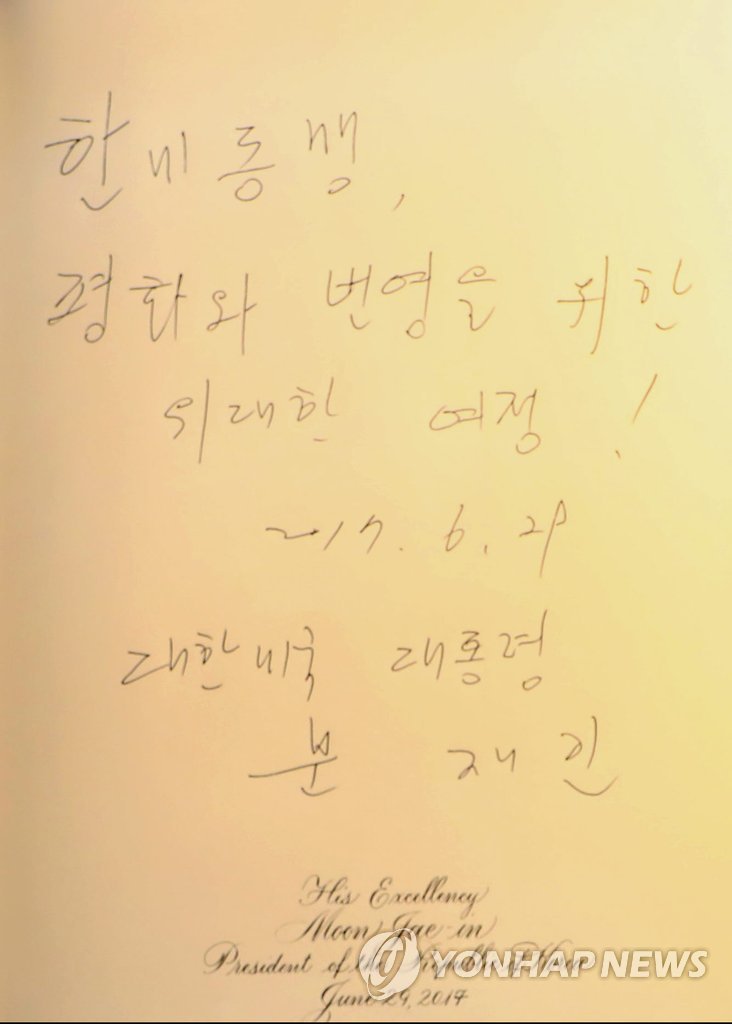 한미동맹,
평화와 번영을 위한
위대한 여정!
2017. 6. 29
대한미국 대통령
문 재 인
His Excellency
Moon Jae-in
President of the Republic of Korea
YONHAP NEWS
June 29, 2017